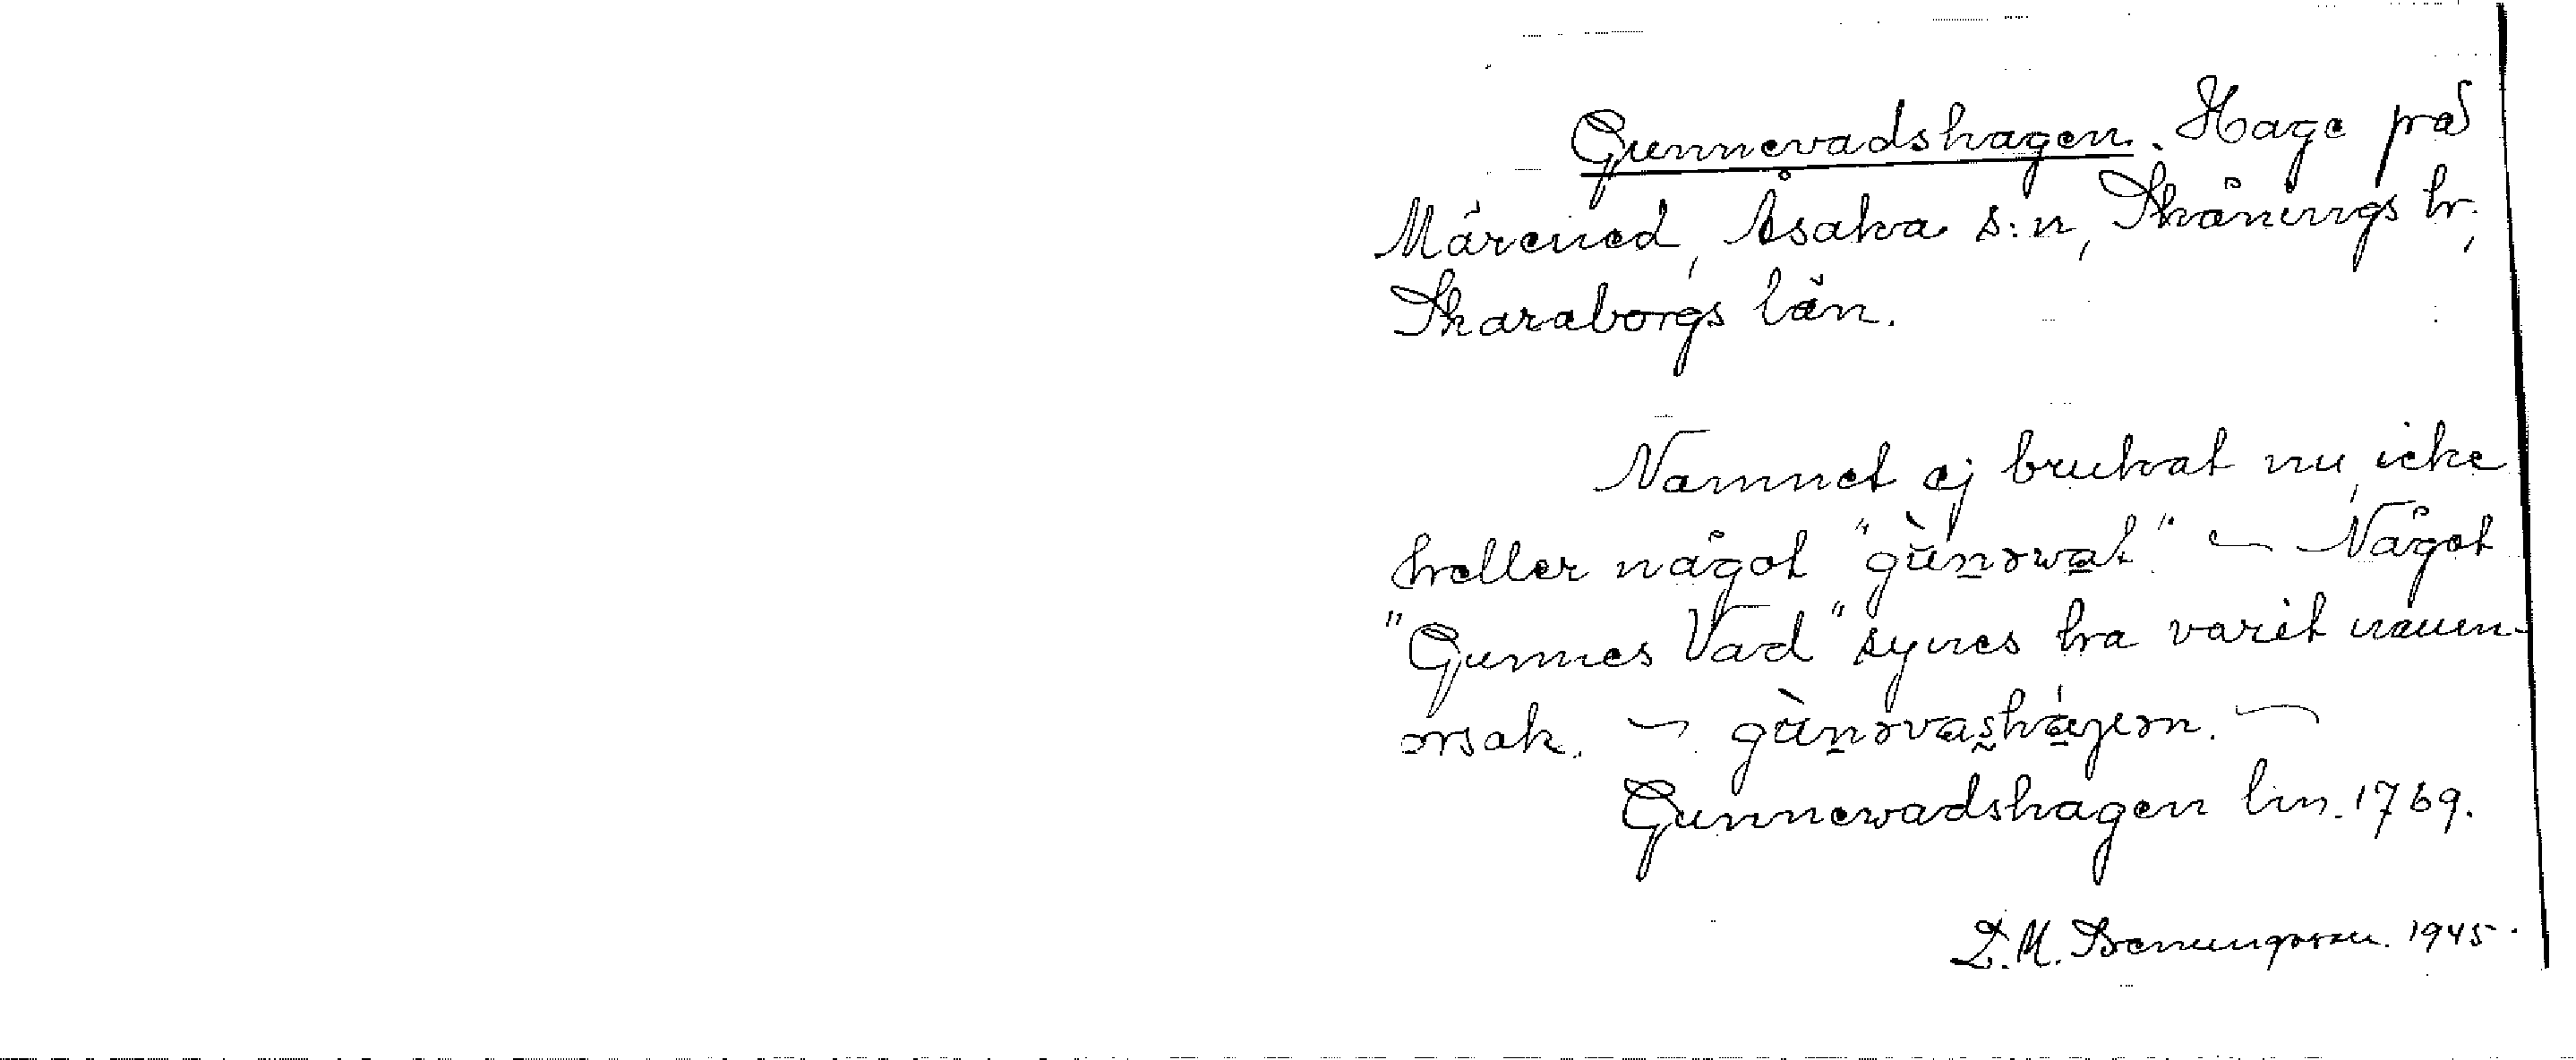 Gunnevadshagen. Hage på
Märened, Åsaka s:n, Skånings hr,
Skaraborgs län.
Namnet ej brukat nu, icke
heller något "gùnəwat." — Något
"Gunnes Vad" synes ha varit namn-
orsak. — gùnəvashágen. —
Gunnewadshagen lm. 1769.
D. M. 1945.